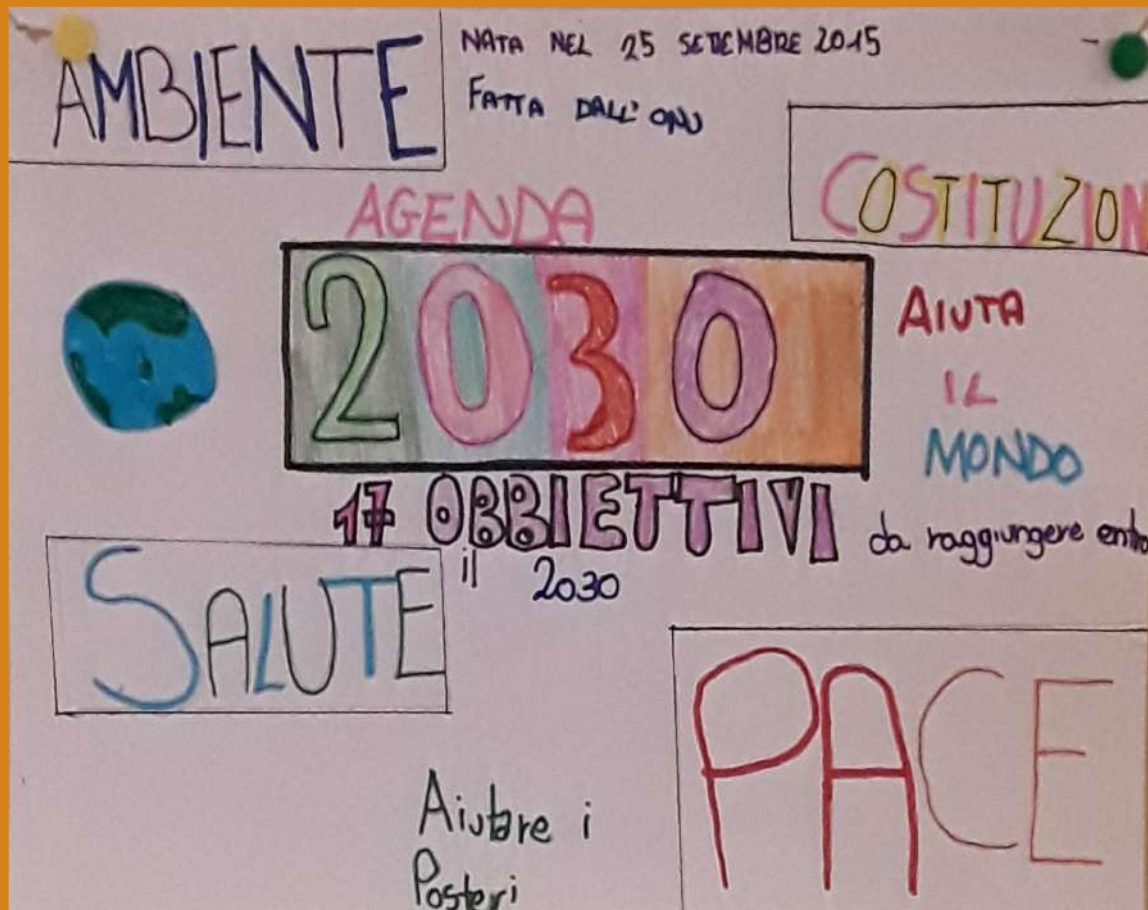 AMBIENTE
NATA NEL 25 SETTEMBRE 2015
FATTA DALL' ONU
COSTITUZION
AGENDA
2030
AIUTA
IL
MONDO
17 OBBIETTIVI da raggiungere entro
il 2030
SALUTE
PACE
Aiutare i
Posteri